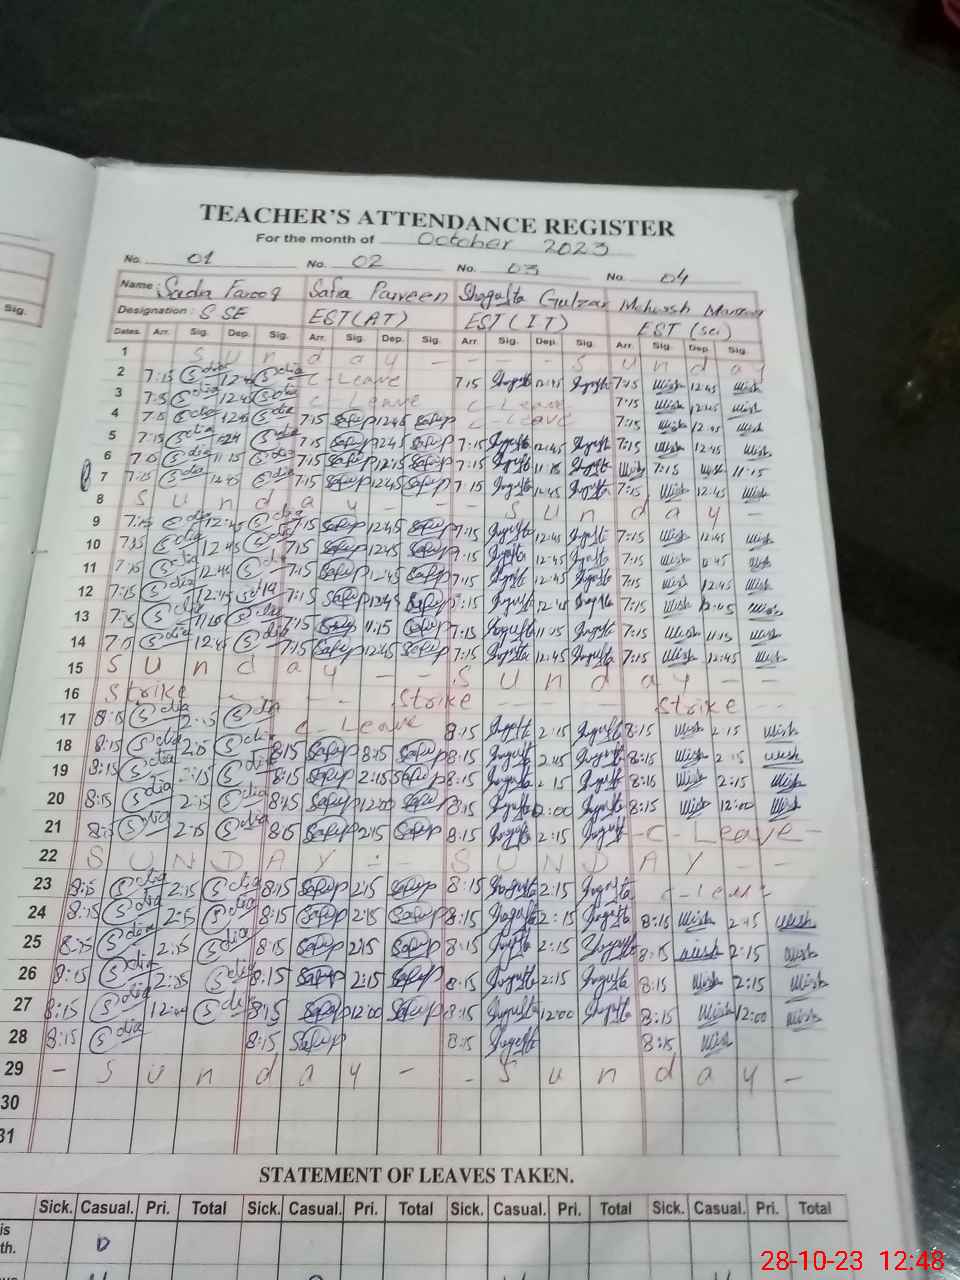 TEACHER'S ATTENDANCE REGISTER
For the month of October 2023
No. 01 No. 02 No. 03 No. 04
Sig. Name : Sadia Farooq Safia Parveen Shagufta Gulzar Mehwish
Designation : SSE EST(AT) EST(IT) EST (Sci)
Dates. Arr. Sig. Dep. Sig. Arr. Sig. Dep. Sig. Arr. Sig. Dep. Sig. Arr. Sig. Dep. Sig.
1 S u n d a y - - - - S u n d a y
2 7:15 Sadia 12:45 Sadia C-Leave 7:15 Shagufta 12:45 Shagufta 7:15 Wish 12:45 Wish
3 7:15 Sadia 12:45 Sadia C-Leave C-Leave 7:15 Wish 12:45 Wish
4 7:15 Sadia 12:45 Sadia 7:15 Safup 12:45 Safup C-Leave 7:15 Wish 12:45 Wish
5 7:15 Sadia Sadia 7:15 Safup 12:45 Safup 7:15 Shagufta 12:45 Shagufta 7:15 Wish 12:45 Wish
6 7:15 Sadia 11:15 Sadia 7:15 Safup 12:15 Safup 7:15 Shagufta 11:15 Shagufta Wish 7:15 Wish 11:15
7 7:15 Sadia 12:45 Sadia 7:15 Safup 12:45 Safup 7:15 Shagufta 12:45 Shagufta 7:15 Wish 12:45 Wish
8 S u n d a y - - - S u n d a y -
9 7:15 Sadia 12:45 Sadia 7:15 Safup 12:45 Safup 7:15 Shagufta 12:45 Shagufta 7:15 Wish 12:45 Wish
10 7:15 Sadia 12:45 Sadia 7:15 Safup 12:45 Safup 7:15 Shagufta 12:45 Shagufta 7:15 Wish Wish
11 7:15 Sadia 12:45 Sadia 7:15 Safup 12:45 Safup 7:15 Shagufta 12:45 Shagufta 7:15 Wish 12:45 Wish
12 7:15 Sadia 12:45 Sadia 7:15 Safup 12:45 Safup 7:15 Shagufta 12:45 Shagufta 7:15 Wish 12:45 Wish
13 7:15 Sadia 11:15 Sadia 7:15 Safup 11:15 Safup 7:15 Shagufta 11:15 Shagufta 7:15 Wish 11:15 Wish
14 7:15 Sadia 12:45 Sadia 7:15 Safup 12:45 Safup 7:15 Shagufta 12:45 Shagufta 7:15 Wish 12:45 Wish
15 S u n d a y - - S u n d a y - -
16 Strike - - - Strike - - - Strike -
17 8:15 Sadia 2:15 Sadia C-Leave 8:15 Shagufta 2:15 Shagufta 8:15 Wish 2:15 Wish
18 8:15 Sadia 2:15 Sadia 8:15 Safup 8:15 Safup 8:15 Shagufta 2:45 Shagufta 8:15 Wish 2:15 Wish
19 8:15 Sadia 2:15 Sadia 8:15 Safup 2:15 Safup 8:15 Shagufta 2:15 Shagufta 8:15 Wish 2:15 Wish
20 8:15 Sadia 2:15 Sadia 8:15 Safup 12:00 Safup 8:15 Shagufta 12:00 Shagufta 8:15 Wish 12:00 Wish
21 8:15 Sadia 2:15 Sadia 8:15 Safup 2:15 Safup 8:15 Shagufta 2:15 Shagufta - C - Leave -
22 S U N D A Y - - S U N D A Y - -
23 8:15 Sadia 2:15 Sadia 8:15 Safup 2:15 Safup 8:15 Shagufta 2:15 Shagufta C-Leave
24 8:15 Sadia 2:15 Sadia 8:15 Safup 2:15 Safup 8:15 Shagufta 2:15 Shagufta 8:15 Wish 2:45 Wish
25 8:15 Sadia 2:15 Sadia 8:15 Safup 2:15 Safup 8:15 Shagufta 2:15 Shagufta 8:15 Wish 2:15 Wish
26 8:15 Sadia 2:15 Sadia 8:15 Safup 2:15 Safup 8:15 Shagufta 2:15 Shagufta 8:15 Wish 2:15 Wish
27 8:15 Sadia Sadia 8:15 Safup 12:00 Safup 8:15 Shagufta 12:00 Shagufta 8:15 Wish 12:00 Wish
28 8:15 Sadia 8:15 Safup 8:15 Shagufta 8:15 Wish
29 - S u n d a y - - S u n d a y -
30
31
STATEMENT OF LEAVES TAKEN.
Sick. Casual. Pri. Total Sick. Casual. Pri. Total Sick. Casual. Pri. Total Sick. Casual. Pri. Total
is
th. 0
28-10-23 12:48